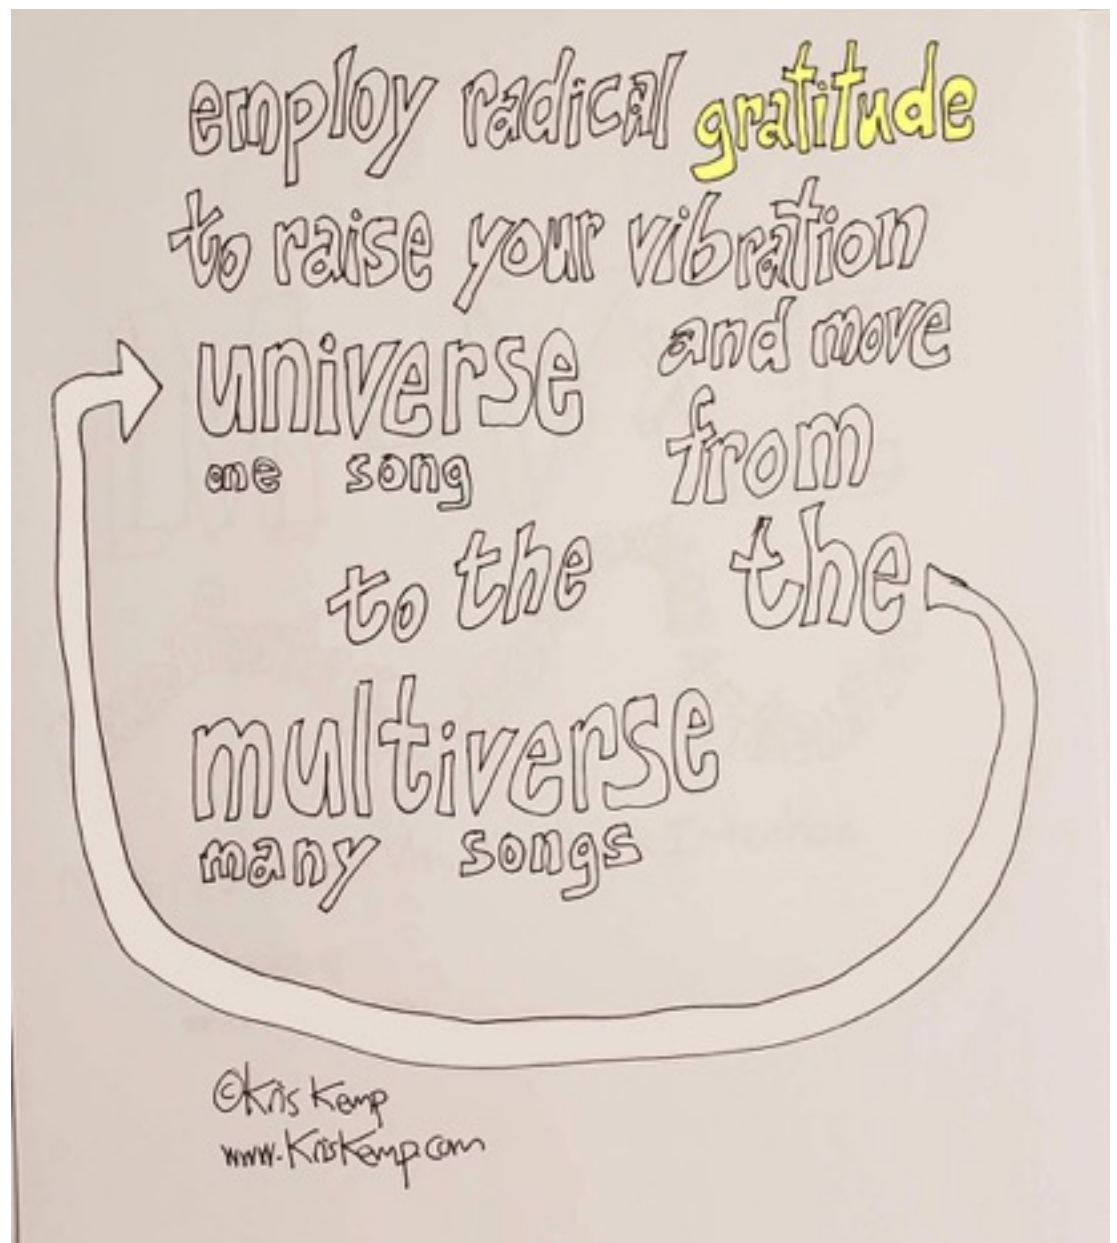 employ radical gratitude
to raise your vibration
and move
from
the
universe
one song
to the
multiverse
many songs
©Kris Kemp
www.KrisKemp.com